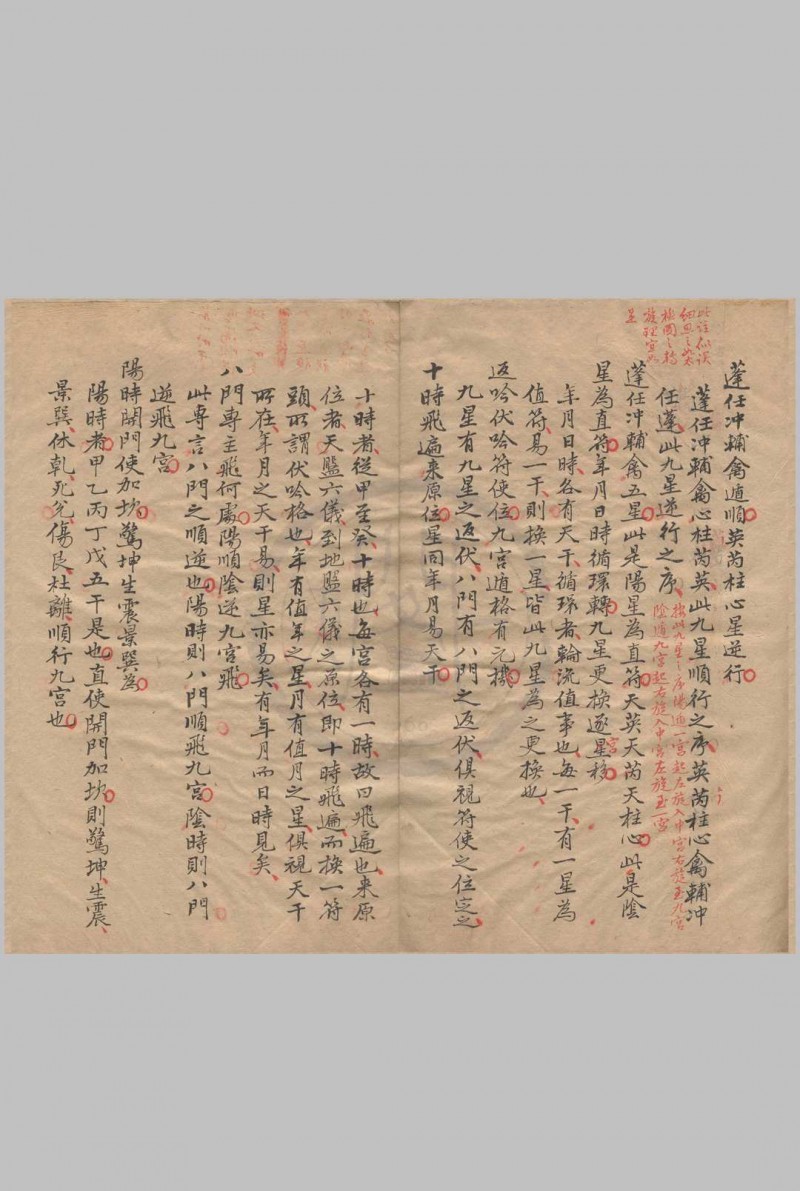 蓬任冲輔禽遁順英芮柱心星逆行
蓬任冲輔禽心柱芮英此九星順行之序英芮柱心禽輔冲
任蓬此九星逆行之序
按此九星之序陽遁一宮起左旋入中宮右旋至九宮
陰遁九宮起右旋入中宮左旋至一宮
蓬任冲輔禽五星此是陽星為直符天英天芮天柱心此是陰
星為直符年月日時循環轉九星更換逐星移
宮
年月日時各有天干循環者輪流值事也每一干有一星為
值符易一干則換一星皆此九星為之更換也
返吟伏吟符使位九宮遁格有元機
九星有九星之返伏八門有八門之返伏俱視符使之位定之
十時飛遍來原位星同年月易天干
此註似誤
細思之
按圖之
旋理宜如
是
十時者從甲至癸十時也每宮各有一時故曰飛遍也來原
位者天盤六儀到地盤六儀之原位即十時飛遍而換一符
頭所謂伏吟格也年有值年之星月有值月之星俱視天干
所在年月之天干易則星亦易矣有年月而日時見矣
八門專主飛何處陽順陰逆九宮飛
此專言八門之順逆也陽時則八門順飛九宮陰時則八門
逆飛九宮
陽時開門使加坎驚坤生震景巽為
陽時者甲乙丙丁戊五干是也直使開門加坎則驚坤生震
景巽休乾死兌傷艮杜離順行九宮也